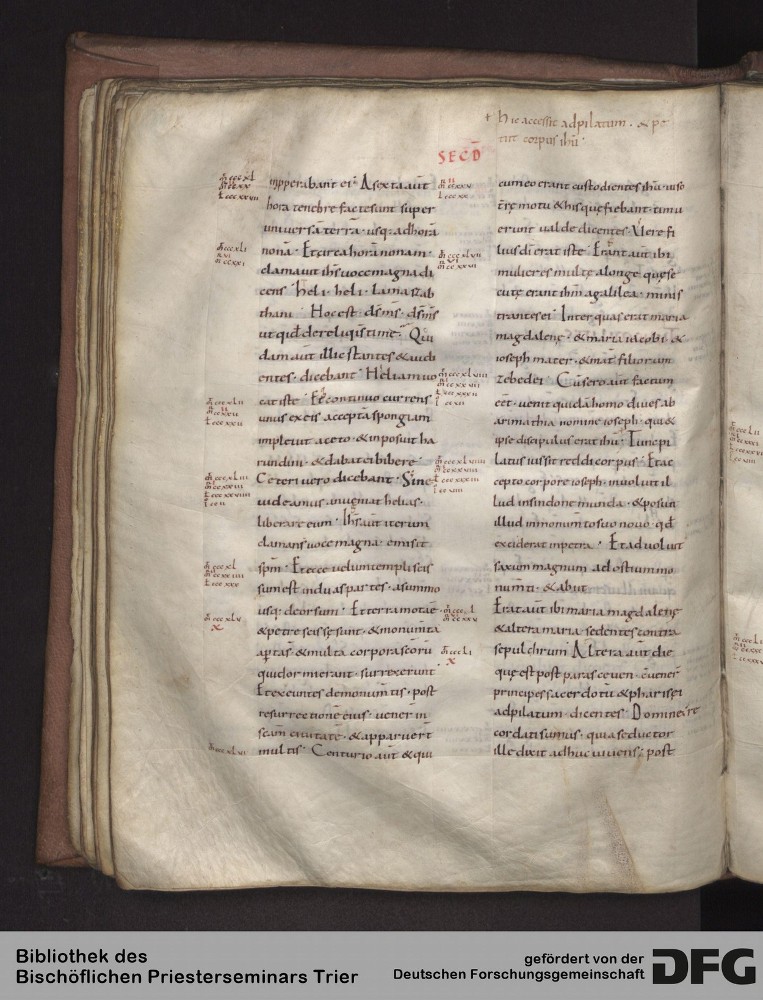 + hic accessit ad pilatum · & pe
tiit corpus ihū ·
SECD̄
inpperabant ei · A sexta aūt
hora tenebre factesunt super
universā terrā · usq· ad horā
nonā · Et circa horā nonam ·
clamavit ihs voce magna di
cens heli · heli · lamazab
thani · Hoc est · dsms̄ · dsms̄
ut qid dereliquistime · Qui
dam aūt illic stantes & audi
entes · dicebant · Heliam vo
cat iste · Et continuo currens
unus ex eis acceptā spongiam
implevit aceto · & inposuit ha
rundini · & dabat ei bibere ·
Ceteri vero dicebant · Sine
videamus an veniat helias ·
liberare eum · Ihs aūt iterum
clamans voce magna · emisit
spm̄ · Et ecce velum templi scis
sum est in duas partes · a summo
usq· deorsum · Et terra mota ē ·
& petre scisse sunt · & monumta
aptas · & multa corpora scorū
qui dormierant · surrexerunt
Et exeuntes de monumtis · post
resurrectionē eius · vener̄ in
scam civitatē · & apparuert
multis · Centurio aūt & qui
cum eo erant custodientes ihū · viso
tr̄e motu & his que fiebant · timu
erunt valde dicentes · Vere fi
lius di erat iste · Erant aūt ibi
mulieres multę a longe · quę se
cutę erant ihm a galilea · minis
trantes ei · Inter quas erat maria
magdalenę · & maria iacobi · &
ioseph mater · & mat̄ filiorum
zebedei · Cū sero aūt factum
eet̄ · venit quidā homo dives ab
arimathia nomine ioseph · qui &
ipse discipulus erat ihū · Tunc pi
latus iussit reddi corpus · Et ac
cepto corpore ioseph · involvit il
lud in sindone munda · & posuit
illud in monumto suo novo · qd̄
exciderat in petra · Et advolvit
saxum magnum ad ostium mo
numti · & abiit
Erat aūt ibi maria magdalenę
& altera maria · sedentes contra
sepulchrum · Altera aūt die
que est post parasceuen · c̄vener̄
principes sacerdotū & pharisei
ad pilatum · dicentes · Domine
recordati sumus · quia seductor
ille dixit adhuc vivens · post
Bibliothek des
Bischöflichen Priesterseminars Trier
gefördert von der
Deutschen Forschungsgemeinschaft
DFG